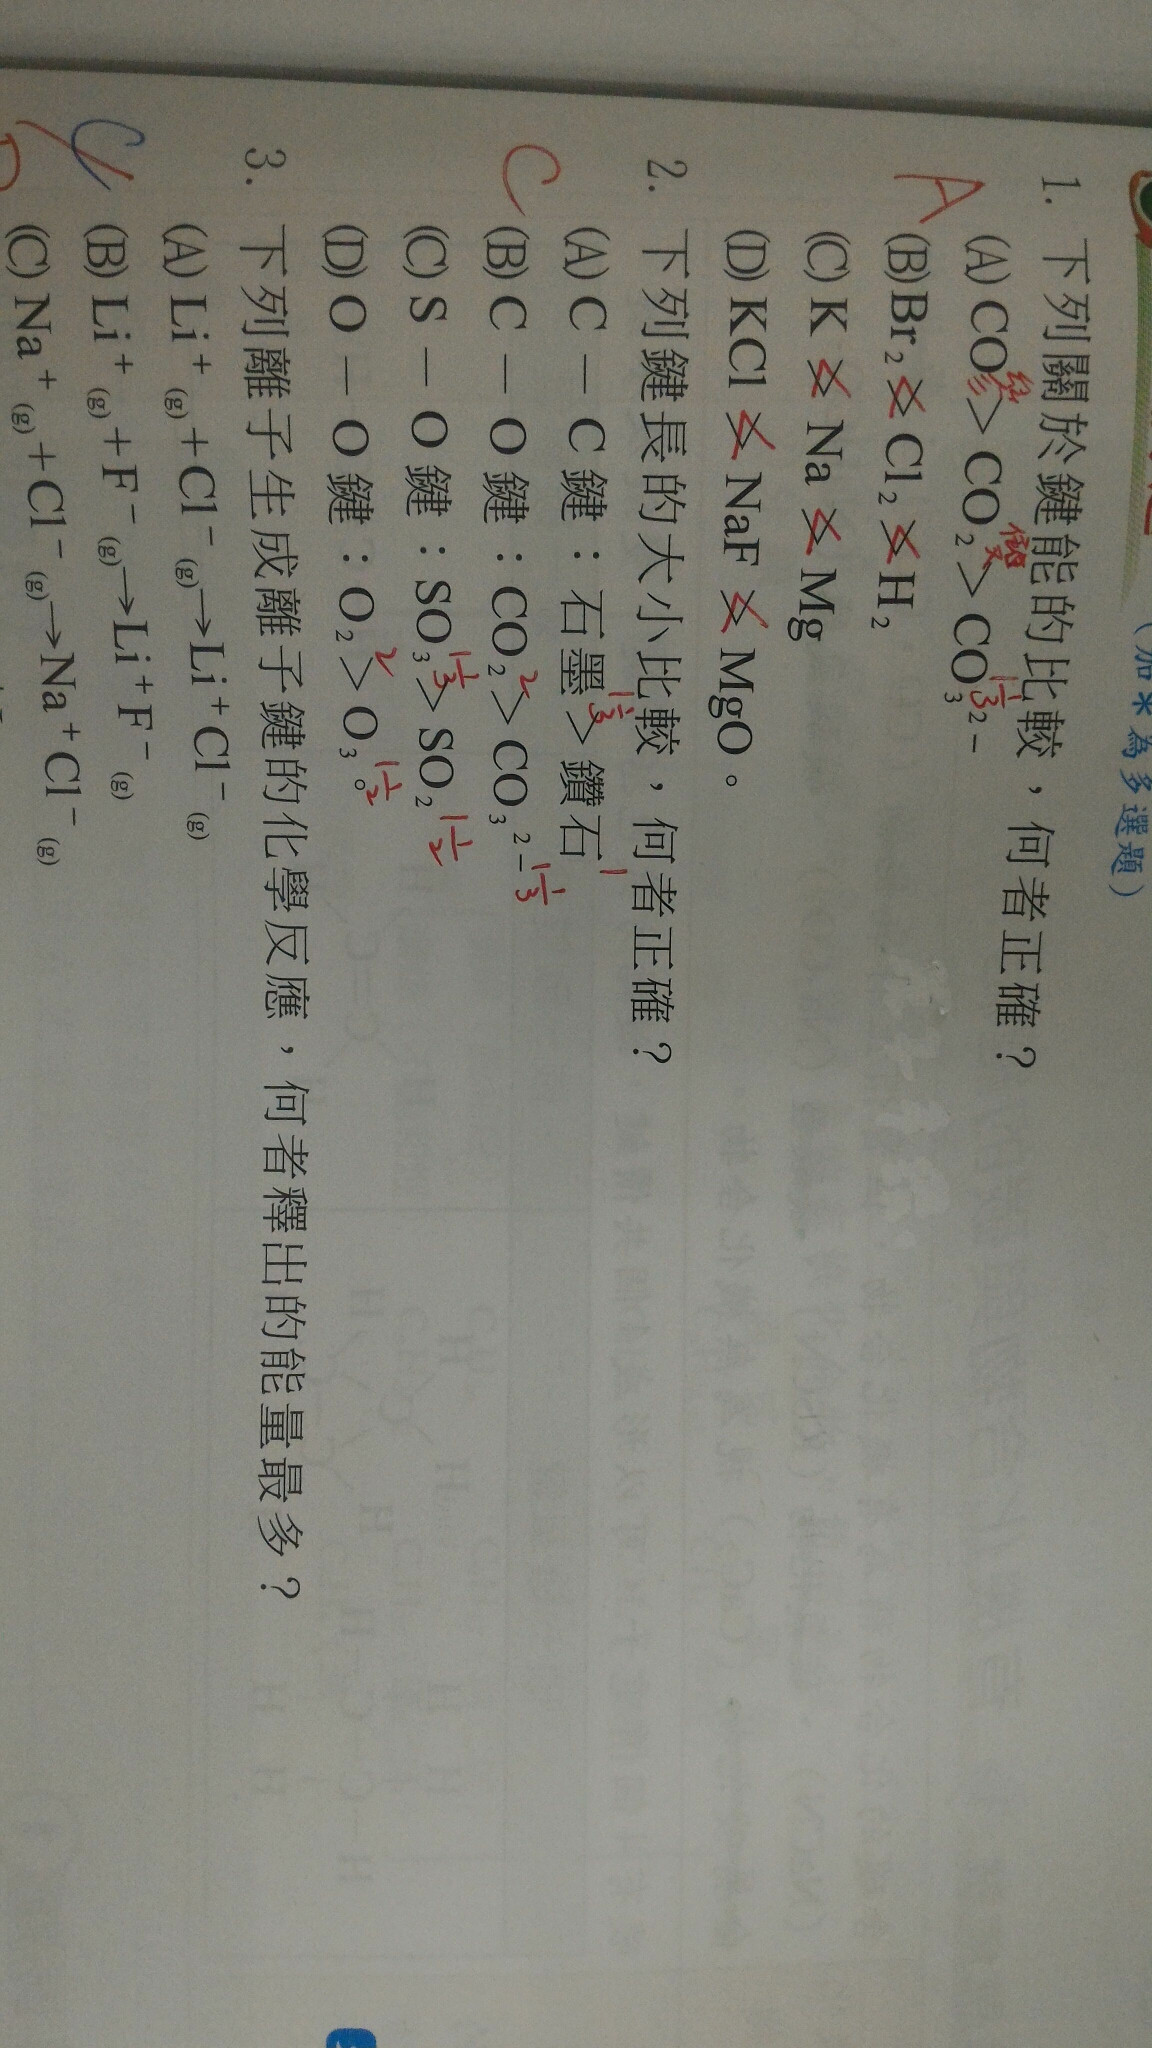 (加※為多選題)
1. 下列關於鍵能的比較，何者正確？
A
(A) CO > CO₂ > CO₃²⁻
1⅓
(B) Br₂ > Cl₂ > H₂
(C) K > Na > Mg
(D) KCl > NaF > MgO。
2. 下列鍵長的大小比較，何者正確？
C
(A) C－C 鍵：石墨 > 鑽石
1⅓ 1
(B) C－O 鍵：CO₂ > CO₃²⁻
2 1⅓
(C) S－O 鍵：SO₃ > SO₂
1⅓ 1½
(D) O－O 鍵：O₂ > O₃。
2 1½
3. 下列離子生成離子鍵的化學反應，何者釋出的能量最多？
(A) Li⁺(g) + Cl⁻(g) → Li⁺Cl⁻(g)
(B) Li⁺(g) + F⁻(g) → Li⁺F⁻(g)
(C) Na⁺(g) + Cl⁻(g) → Na⁺Cl⁻(g)